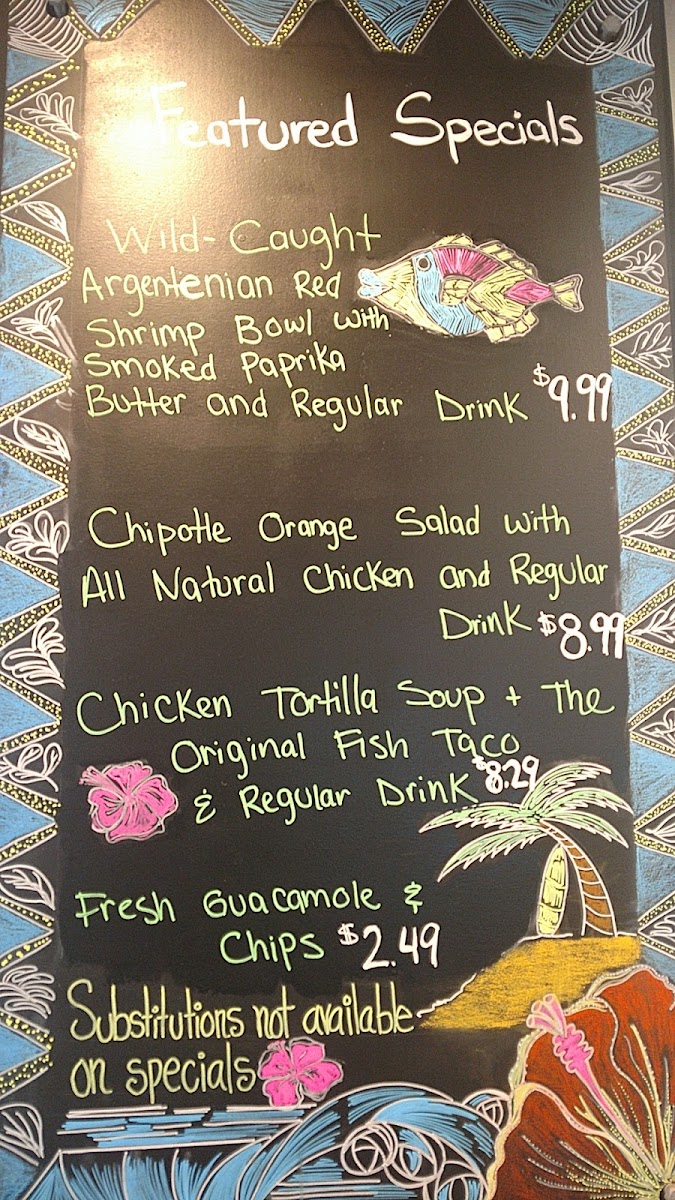 Featured Specials
Wild-Caught
Argentenian Red
Shrimp Bowl with
Smoked Paprika
Butter and Regular Drink $9.99
Chipotle Orange Salad with
All Natural Chicken and Regular
Drink $8.99
Chicken Tortilla Soup + The
Original Fish Taco
& Regular Drink $8.29
Fresh Guacamole &
Chips $2.49
Substitutions not available
on specials